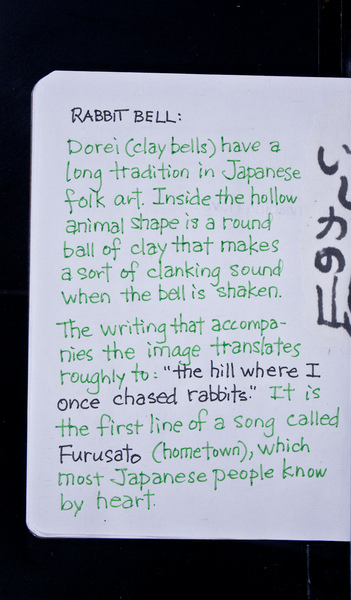 RABBIT BELL:
Dorei (clay bells) have a
long tradition in Japanese
folk art. Inside the hollow
animal shape is a round
ball of clay that makes
a sort of clanking sound
when the bell is shaken.
The writing that accompa-
nies the image translates
roughly to: "the hill where I
once chased rabbits." It is
the first line of a song called
Furusato (hometown), which
most Japanese people know
by heart.